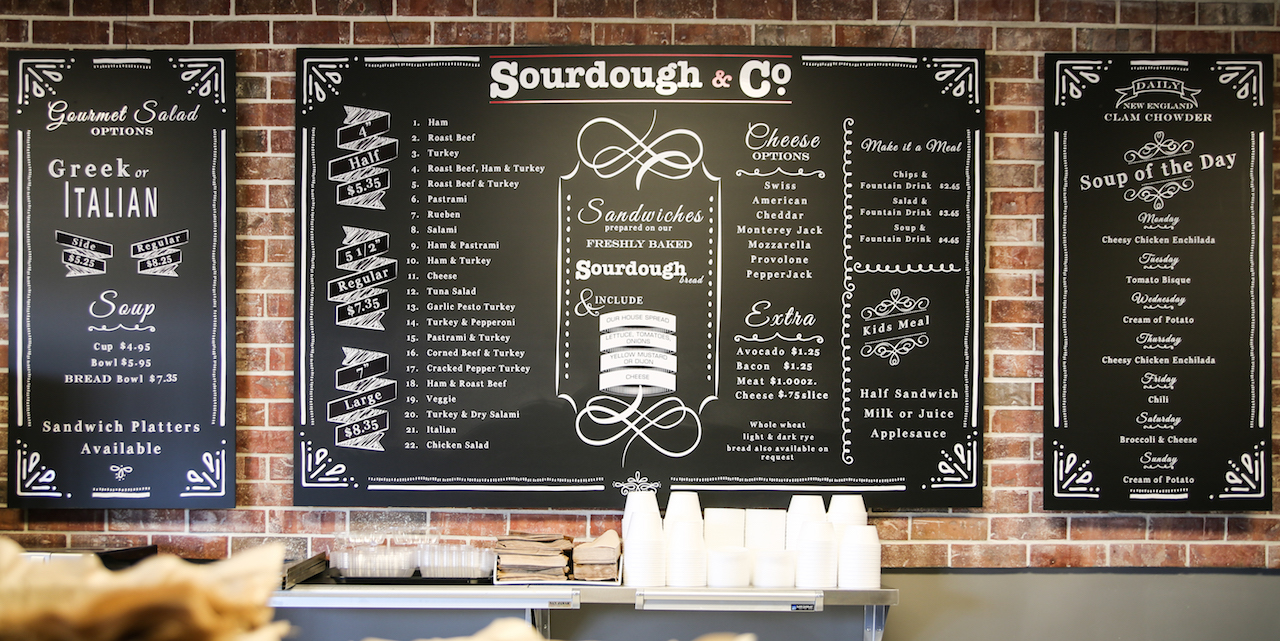 Gourmet Salad
OPTIONS
Greek or
ITALIAN
Side
$5.25
Regular
$8.25
Soup
Cup $4.95
Bowl $5.95
BREAD Bowl $7.35
Sandwich Platters
Available
Sourdough & Co.
4"
Half
$5.35
5 1/2"
Regular
$7.35
7"
Large
$8.35
1. Ham
2. Roast Beef
3. Turkey
4. Roast Beef, Ham & Turkey
5. Roast Beef & Turkey
6. Pastrami
7. Rueben
8. Salami
9. Ham & Pastrami
10. Ham & Turkey
11. Cheese
12. Tuna Salad
13. Garlic Pesto Turkey
14. Turkey & Pepperoni
15. Pastrami & Turkey
16. Corned Beef & Turkey
17. Cracked Pepper Turkey
18. Ham & Roast Beef
19. Veggie
20. Turkey & Dry Salami
21. Italian
22. Chicken Salad
Sandwiches
prepared on our
FRESHLY BAKED
Sourdough
bread
& INCLUDE
OUR HOUSE SPREAD
LETTUCE, TOMATOES,
ONIONS
YELLOW MUSTARD
OR DIJON
CHEESE
Cheese
OPTIONS
Swiss
American
Cheddar
Monterey Jack
Mozzarella
Provolone
PepperJack
Extra
Avocado $1.25
Bacon $1.25
Meat $1.00oz.
Cheese $.75slice
Whole wheat
light & dark rye
bread also available on
request
Make it a Meal
Chips &
Fountain Drink $2.65
Salad &
Fountain Drink $3.65
Soup &
Fountain Drink $4.65
Kids Meal
Half Sandwich
Milk or Juice
Applesauce
DAILY
NEW ENGLAND
CLAM CHOWDER
Soup of the Day
Monday
Cheesy Chicken Enchilada
Tuesday
Tomato Bisque
Wednesday
Cream of Potato
Thursday
Cheesy Chicken Enchilada
Friday
Chili
Saturday
Broccoli & Cheese
Sunday
Cream of Potato